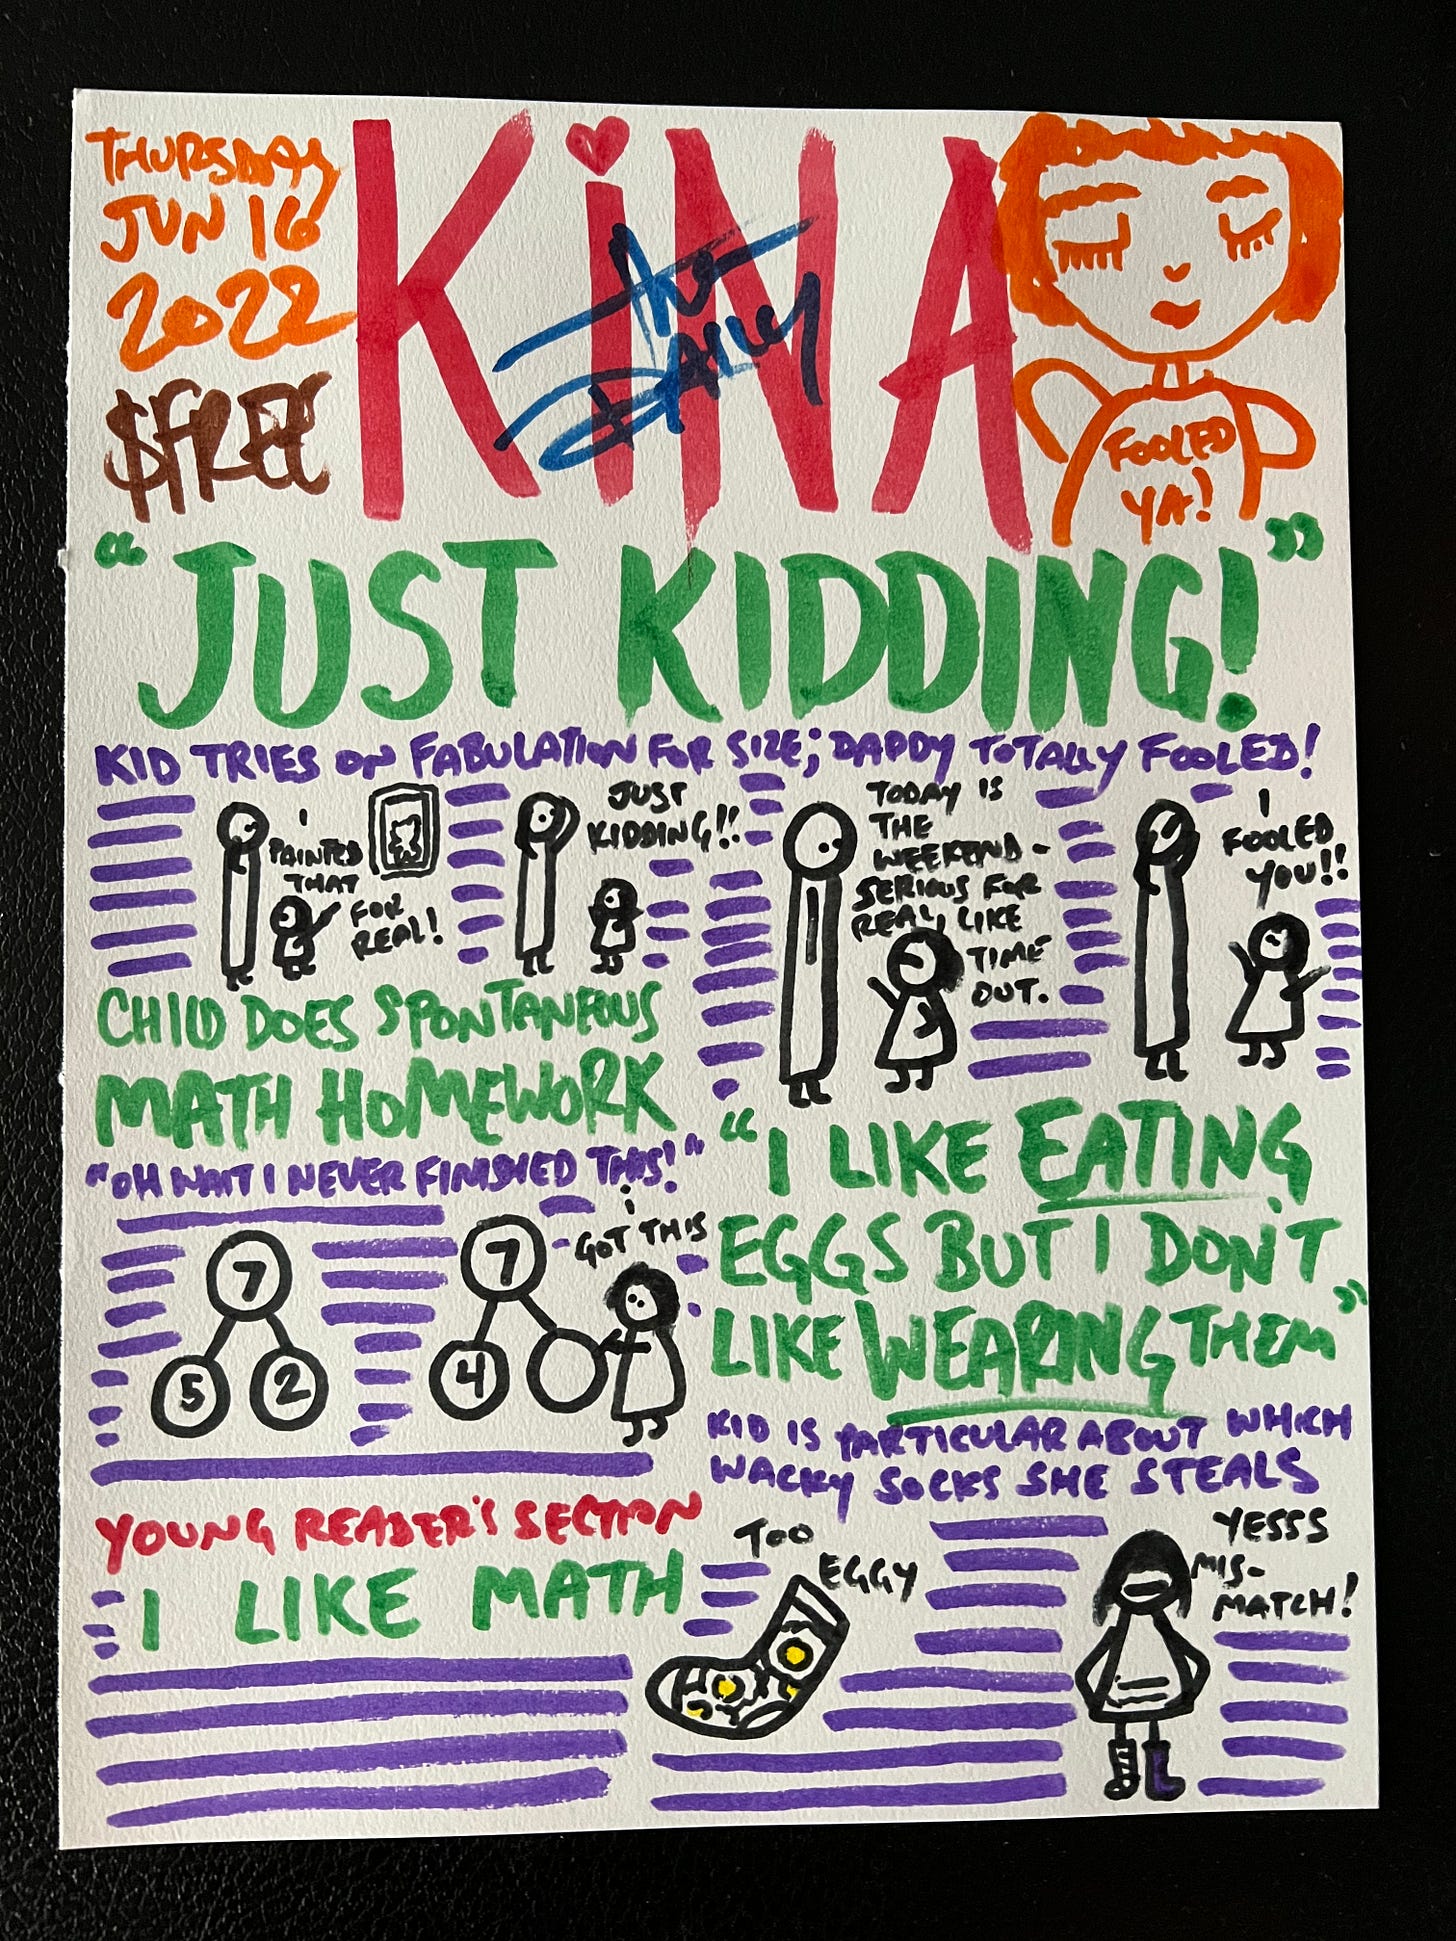 THURSDAY
JUN 16
2022
$FREE
KiNA
THE
DAILY
FOOLED
YA!
"JUST KIDDING!"
KID TRIES ON FABULATION FOR SIZE; DADDY TOTALLY FOOLED!
I
PAINTED
THAT
FOR
REAL!
JUST
KIDDING!!
TODAY IS
THE
WEEKEND -
SERIOUS FOR
REAL, LIKE
TIME
OUT.
I
FOOLED
YOU!!
CHILD DOES SPONTANEOUS
MATH HOMEWORK
"OH WAIT I NEVER FINISHED THIS!"
7
5 2
7
4
i
GOT THIS
"I LIKE EATING
EGGS BUT I DON'T
LIKE WEARING THEM"
KID IS PARTICULAR ABOUT WHICH
WACKY SOCKS SHE STEALS
TOO
EGGY
YESSS
MIS-
MATCH!
YOUNG READER'S SECTION
I LIKE MATH